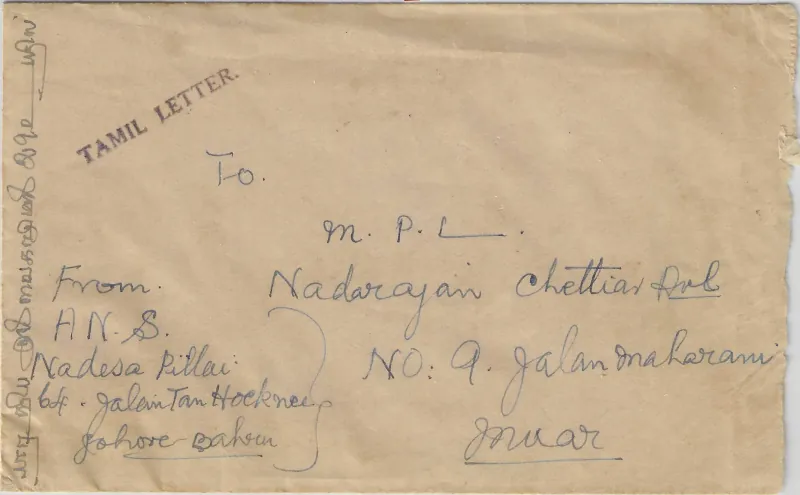 TAMIL LETTER.
To.
M. P. L.
Nadarajan Chettiar
No: 9. Jalan Maharani
Muar
From.
A N. S.
Nadesa Pillai
64. Jalan Tan Hocknee
Johore Bahru